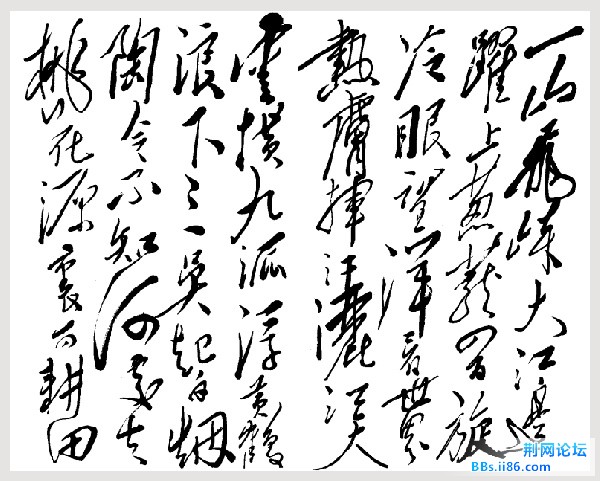 一山飛峙大江邊
躍上葱蘢四百旋
冷眼望洋看世界
熱膚揮汗灑江天
雲横九派浮黄鶴
浪下三吴起白烟
陶令不知何處去
桃花源裏可耕田
荆网论坛
BBs.ii86.com